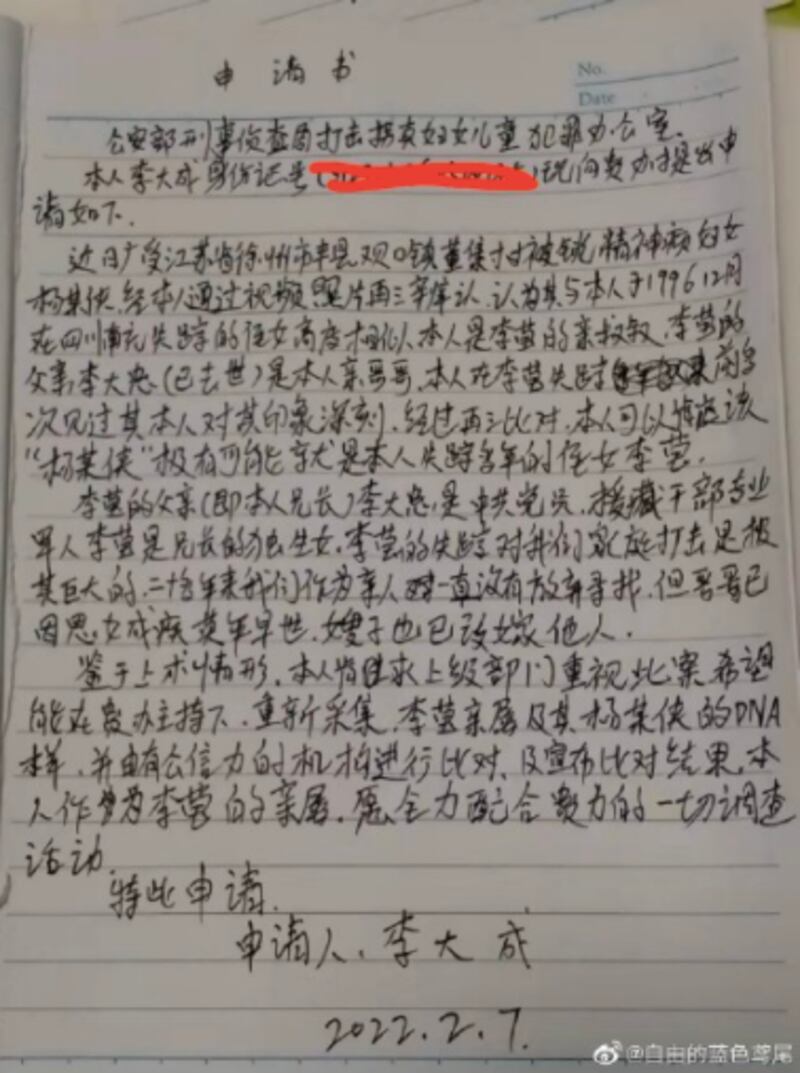 申请书
No.
Date
公安部刑事侦查局打击拐卖妇女儿童犯罪办公室.
本人李大成身份证号(现向贵办提出申
请如下.
近日广受江苏省徐州市丰县欢口镇董集村被锁精神病妇女
杨某侠,经本人通过视频照片再三辨认,认为其与本人于199612月
在四川南充失踪的侄女高度相似,本人是李莹的亲叔叔,李莹的
父亲李大忠(已去世)是本人亲哥哥,本人在李莹失踪前多
次见过其本人对其印象深刻,经过再三比对,本人可以该
"杨某侠"极有可能就是本人失踪多年的侄女李莹.
李莹的父亲(即本人兄长)李大忠,是中共党员,援藏干部专业
军人李莹是兄长的独生女,李莹的失踪对我们家庭打击是极
其巨大的,二十多年来我们作为亲人一直没有放弃寻找,但哥哥已
因思女成疾英年早世,嫂子也已改嫁他人.
鉴于上术情形,本人特请求上级部门重视此案,希望
能在贵办主持下,重新采集,李莹亲属及其杨某侠的DNA
样,并由有公信力的机构进行比对,及宣布比对结果,本
人作为李莹的亲属,愿全力配合贵方的一切调查
活动.
特此申请.
申请人,李大成
2022.2.7.
@自由的蓝色鸢尾